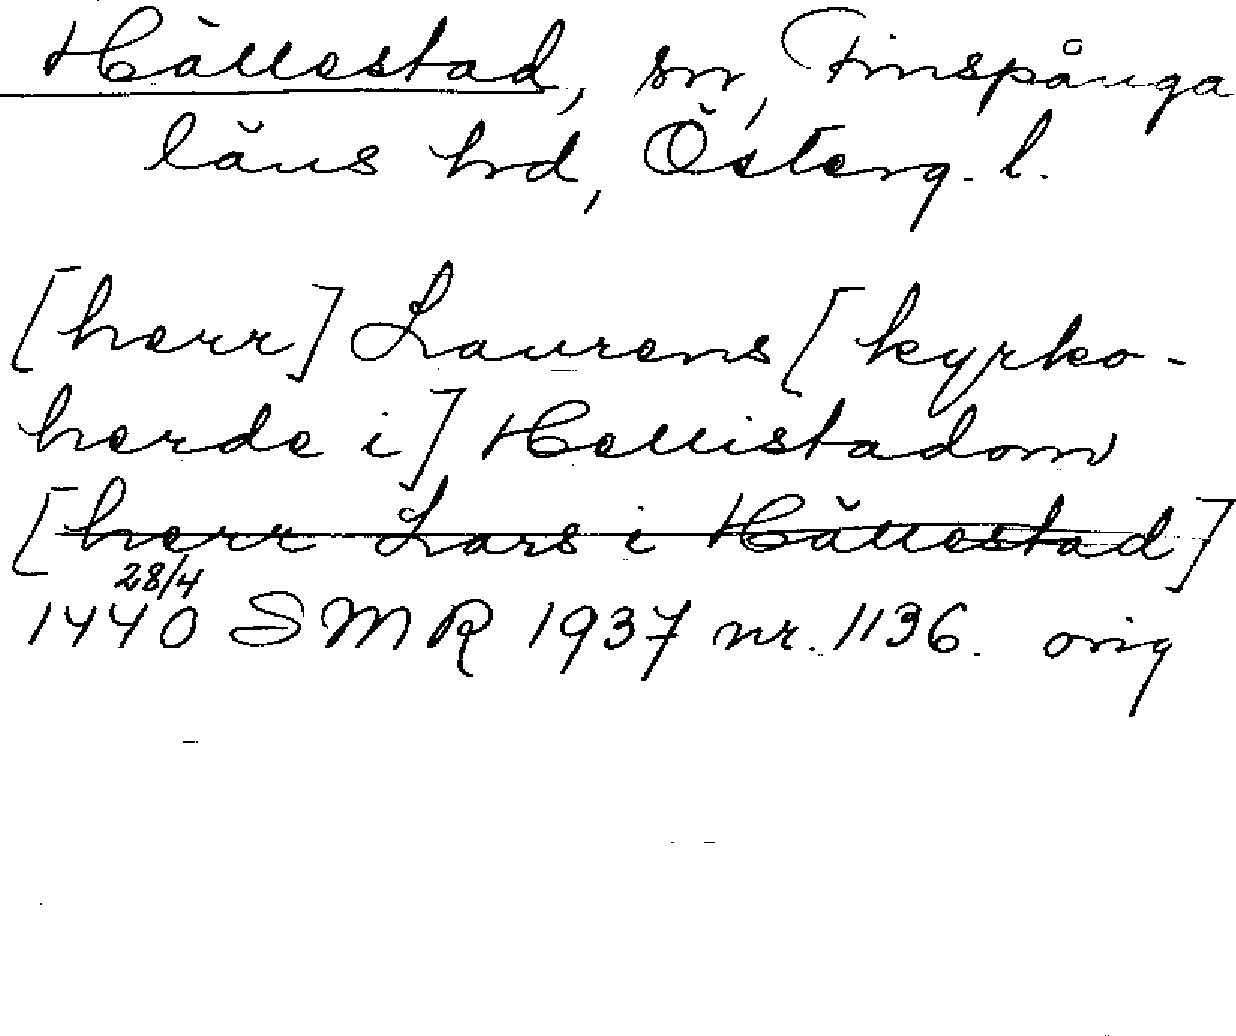 Hällestad, sn, Finspånga
läns hd, Österg. l.
[herr] Laurens [kyrko-
herde i] Hellistadom
[herr Lars i Hällestad]
28/4
1440 SMR 1937 nr. 1136. orig